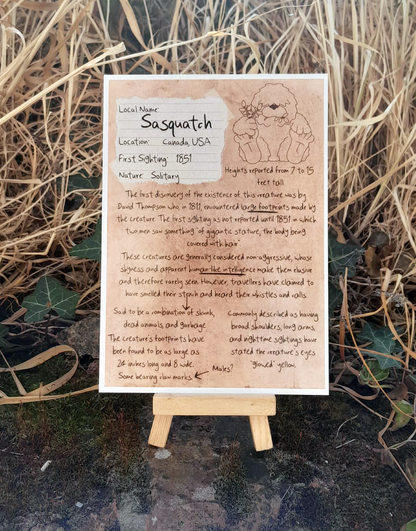 Local Name
Sasquatch
Location: Canada, USA
First Sighting: 1851
Nature Solitary
Heights reported from 7 to 15
feet tall
The first discovery of the existence of this creature was by
David Thompson who in 1811, encountered large footprints made by
the creature. The first sighting as not reported until 1851 in which
two men saw something "of gigantic stature, the body being
covered with hair"
These creatures are generally considered non-aggressive, whose
shyness and apparent human-like intelligence make them elusive
and therefore rarely seen. However, travellers have claimed to
have smelled their stench and heard their whistles and calls.
Said to be a combination of skunk,
dead animals, and garbage
The creature's footprints have
been found to be as large as
24 inches long and 8 wide.
Some bearing claw marks
Males?
Commonly described as having
broad shoulders, long arms
and nighttime sightings have
stated the creature's eyes
"glowed" yellow.